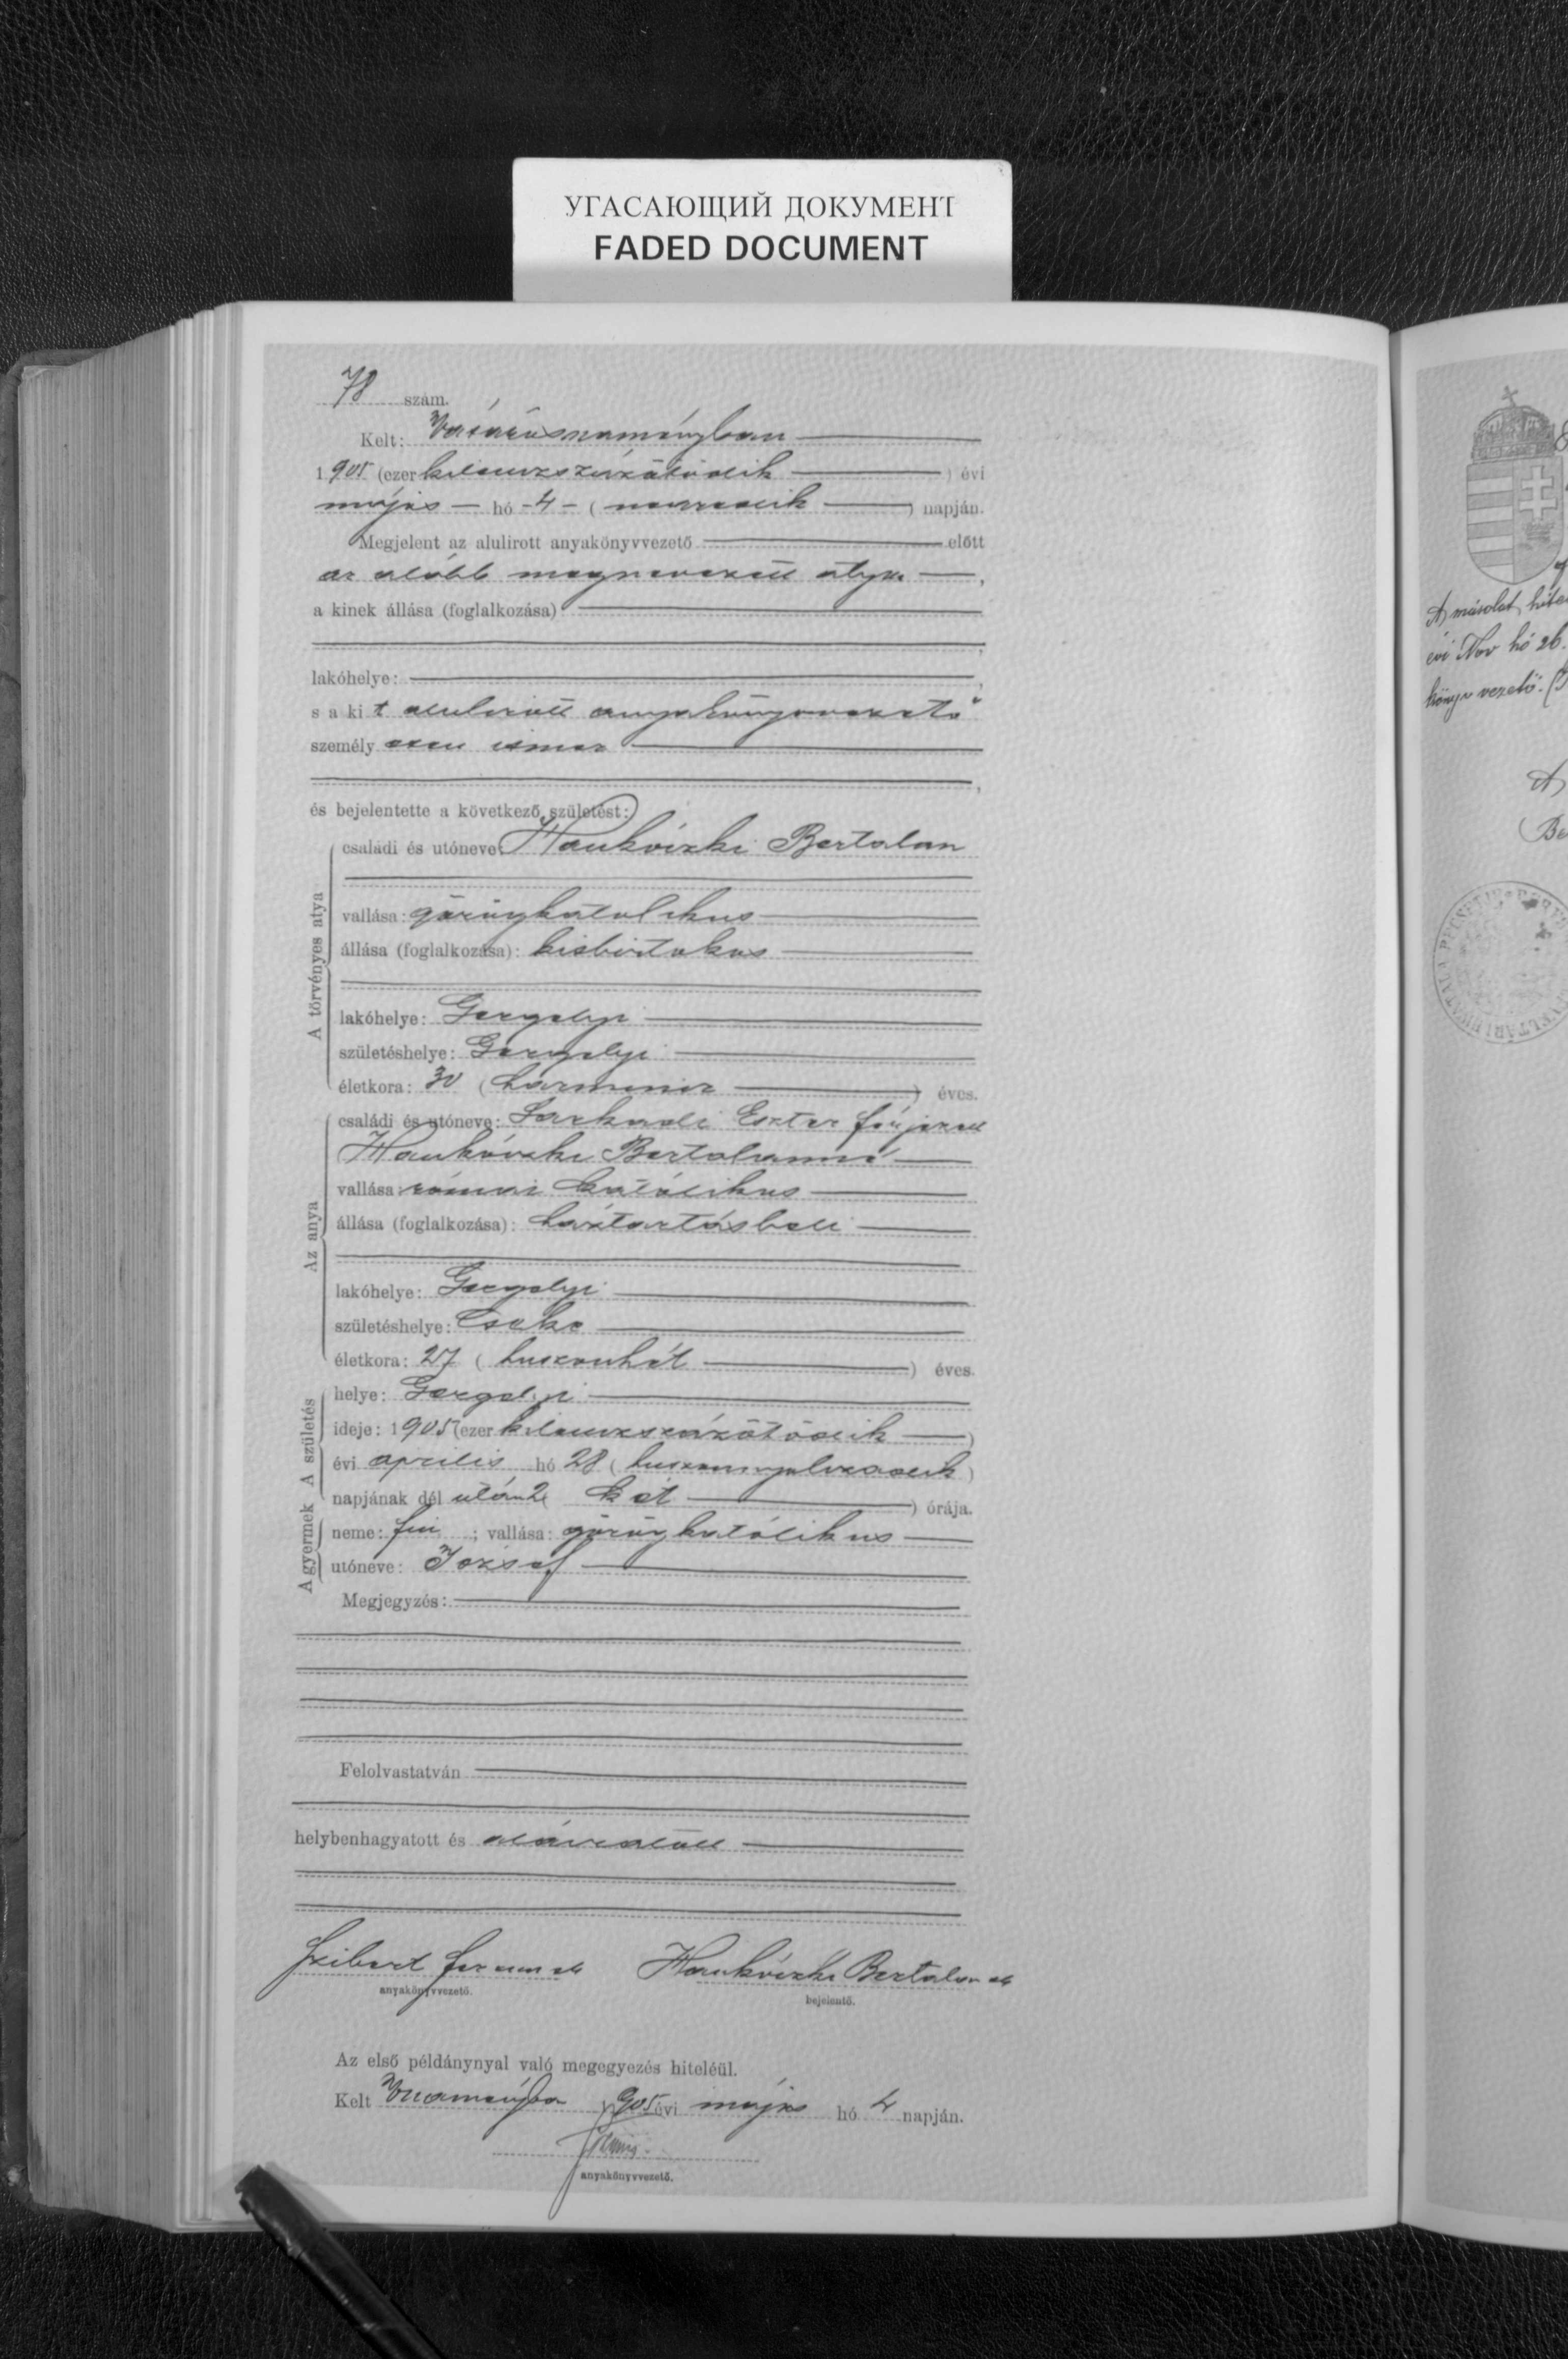 УГАСАЮЩИЙ ДОКУМЕНТ
FADED DOCUMENT
78 szám.
Kelt: Vásárosnaményban
1905 (ezer kilenczszázötödik) évi
május hó 4 (negyedik) napján.
Megjelent az alulirott anyakönyvvezető előtt
az alább megnevezett atya,
a kinek állása (foglalkozása)
lakóhelye:
s a kit alulirott anyakönyvvezető
személyesen ismer
és bejelentette a következő születést:
A törvényes atya
családi és utóneve: Hankóvszki Bertalan
vallása: görögkatolikus
állása (foglalkozása): kisbirtokos
lakóhelye: Gergelyi
születéshelye: Gergelyi
életkora: 30 (harmincz) éves.
Az anya
családi és utóneve: Sarkadi Eszter férjezett
Hankóvszki Bertalanné
vallása: római katólikus
állása (foglalkozása): háztartásbeli
lakóhelye: Gergelyi
születéshelye: Cseke
életkora: 27 (huszonhét) éves.
A születés
helye: Gergelyi
ideje: 1905 (ezer kilenczszázötödik)
évi aprilis hó 28 (huszonnyolczadik)
napjának dél után 2 két) órája.
A gyermek
neme: fiú; vallása: görögkatólikus
utóneve: József
Megjegyzés:
Felolvastatván
helybenhagyatott és aláiratott
Ferencz sk Hankóvszki Bertalan sk
anyakönyvvezető. bejelentő.
Az első példánynyal való megegyezés hiteléül.
Kelt Vnaményba 1905 évi május hó 4 napján.
anyakönyvvezető.
A másolat hite
évi Nov hó 26.
könyvvezető.
A
Be